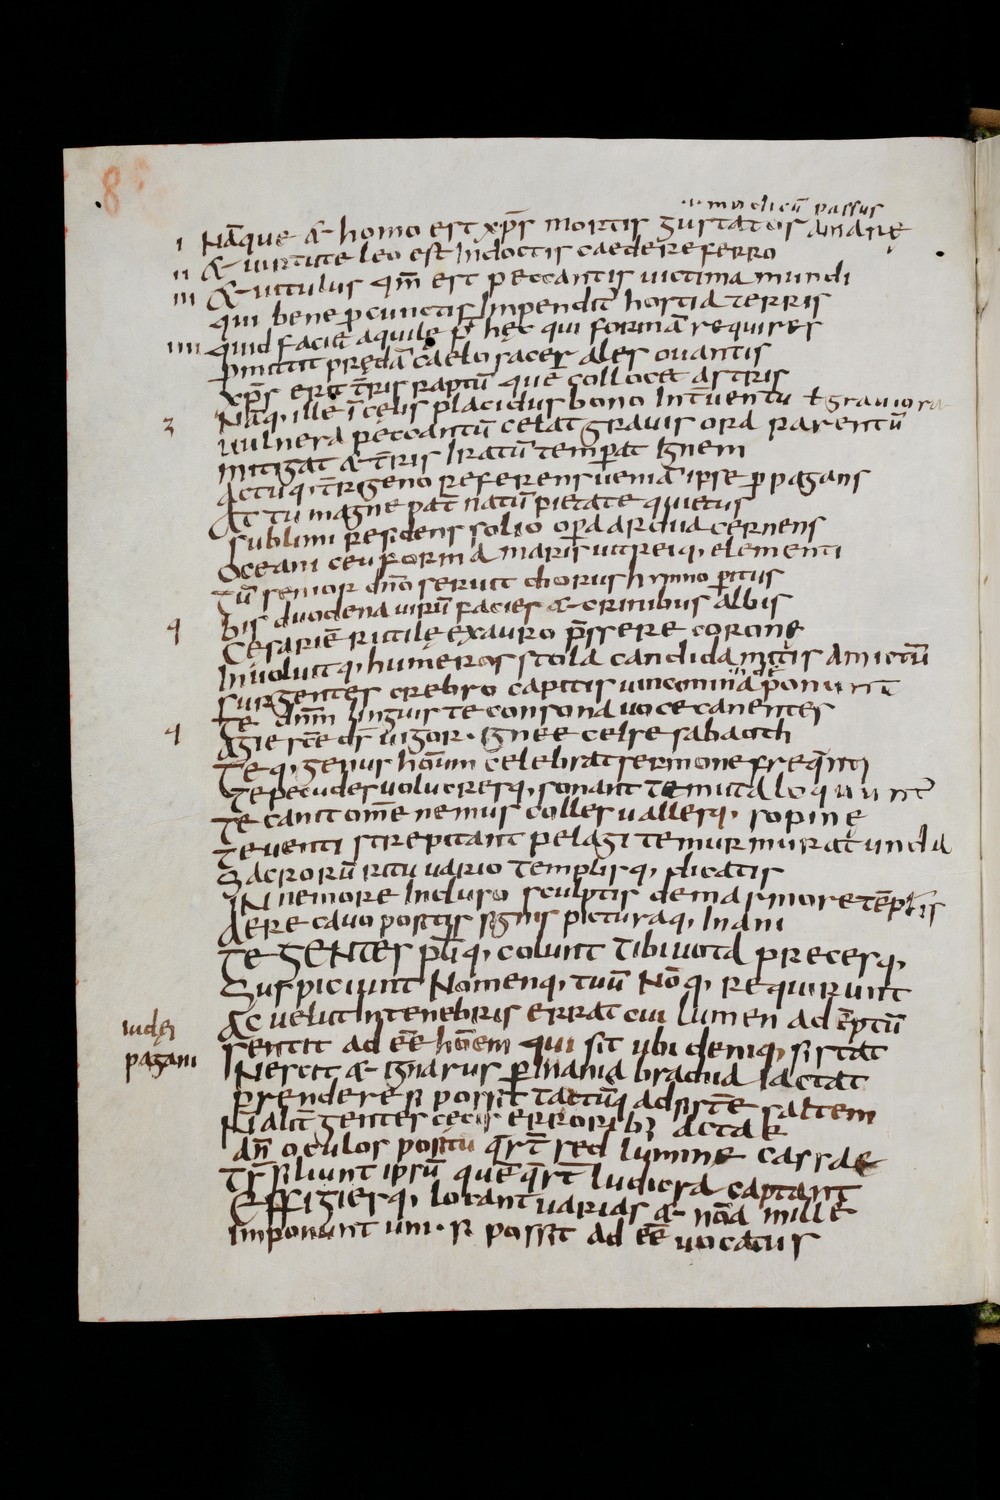 8
modicū passus
i Nāque & homo est xp̄s mortis gustatus amarę
ii & uirtute leo est Indoctis caede referro
iii & uitulus qm̄ est peccantis uictima mundi
qui bene p cunctis Impendit hostia terris
iiii quid faciat aquilę p̄t hęc qui formā requires
pmittit prędā caelo sacer ales ouantis
xp̄s erit t̄ris raptū que collocet astris
3 Naq, ille ī celis placidus bono Int̄uentu ł grauiora
uulnera peccantū celat grauis ora parentū
mitigat & t̄ris Iratū temperat Ignem
Actuq, t̄rigeno referens ueniā ipse p paganis
At tu magne pat̄ natū pietate quietus
sublimi residens solio opa ardua cernens
Oceani ceu forma maris uitreiq, elementi
Tū senior dn̄o seruit chorus hymno peritus
9 bis duodena uirū facies & crinibus albis
Cesariē rutilę ex auro p̄ssere coronę
Inuoluitq, humeros stola candida mitis amictū
surgentes crebro capitis uincomina ponunt
Te dn̄m linguis te consona uoce canentes
9 Agie sc̄e ds̄ uigor· Ignee celse sabaoth
Teq, genus hom̄um celebrat sermone freq̄nti
Te pecudes uolucresq, sonant te muta loquunt̄
Te canit om̄e nemus colles uallesq, sopinę
Te uenti strepitant pelagi te murmurat unda
Sacrorū ritu uario templisq, dicatis
IN nemore Incluso sculptis de marmore tēplis
Aere cauo positis signis picturaq, Inani
Te GENTES pl̄iq, colunt tibi uota precesq,
Suspiciunt Nomenq, tuū Nōq, requirunt
iudęi Ac uelut In tenebris errat cui lumen ademptū
pagani sentit ad eē hoīem qui sit ubi deniq, sistat
Nescit & Ignarus p Inania brachia Iactat
prendere si possit tactūq adsistē saltem
N alit̄ gentes cęcis erroribȝ actae
an̄ oculos positū q̄rt̄ sed lumine cassae
Trāsiliunt ipsū quē q̄rt̄ ludicra captant
Effigiesq, locant uarias & nōa mille
Imponunt uni· si possit ad eē uocatus